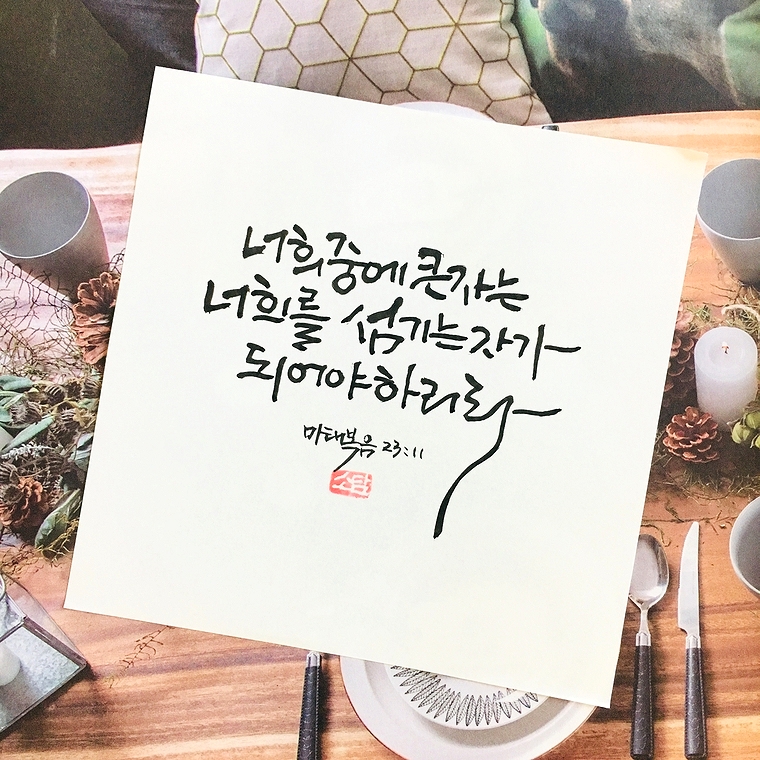 너희 중에 큰 자는
너희를 섬기는 자가
되어야 하리라
마태복음 23:11
소담